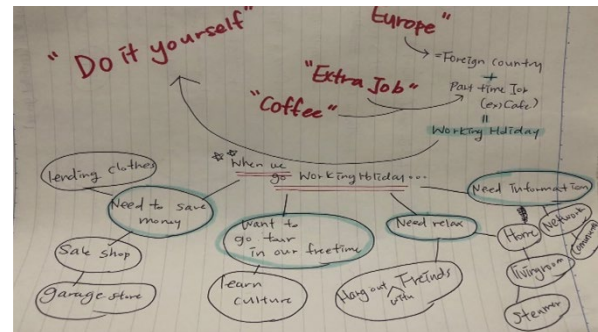 Europe"
"Do it yourself"
=Foreign country
+
Part time Job
(ex) Cafe)
"Extra Job"
"Coffee"
=
Working Hdiday
When we
go Working Hdiday...
Lending clothes
Need to save
money
Sale shop
garage store
Want to
go tour
in our freetime
learn
culture
Need relax
Hang out with Freinds
Need Information
Home
Network
Community
livingroom
Steamer